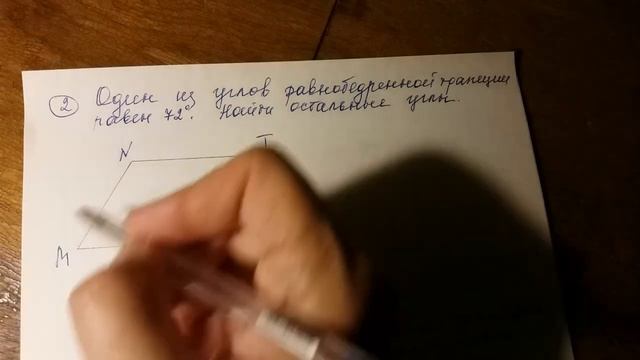 2 Один из углов равнобедренной трапеции
равен 72°. Найти остальные углы.
N T
M